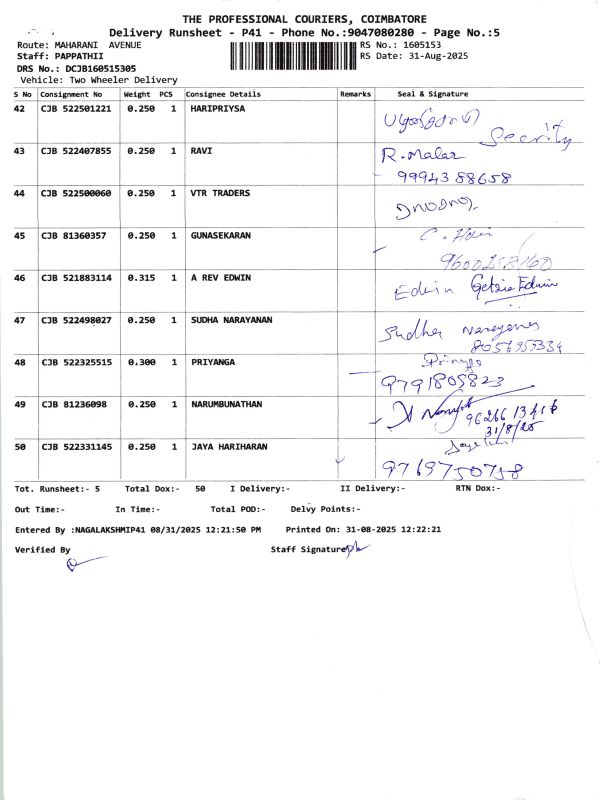 THE PROFESSIONAL COURIERS, COIMBATORE
Delivery Runsheet - P41 - Phone No.:9047080280 - Page No.:5
Route: MAHARANI AVENUE RS No.: 1605153
Staff: PAPPATHII RS Date: 31-Aug-2025
DRS No.: DCJB160515305
Vehicle: Two Wheeler Delivery
S No Consignment No Weight PCS Consignee Details Remarks Seal & Signature
42 CJB 522501221 0.250 1 HARIPRIYSA
Secrity
43 CJB 522407855 0.250 1 RAVI R. Malar
9994388658
44 CJB 522500060 0.250 1 VTR TRADERS
45 CJB 81360357 0.250 1 GUNASEKARAN
46 CJB 521883114 0.315 1 A REV EDWIN Edwin Getzia Edwin
47 CJB 522498027 0.250 1 SUDHA NARAYANAN Sudha
48 CJB 522325515 0.300 1 PRIYANGA
9791805823
49 CJB 81236098 0.250 1 NARUMBUNATHAN
31/8/25
50 CJB 522331145 0.250 1 JAYA HARIHARAN
9769750758
Tot. Runsheet:- 5 Total Dox:- 50 I Delivery:- II Delivery:- RTN Dox:-
Out Time:- In Time:- Total POD:- Delvy Points:-
Entered By :NAGALAKSHMIP41 08/31/2025 12:21:50 PM Printed On: 31-08-2025 12:22:21
Verified By Staff Signature